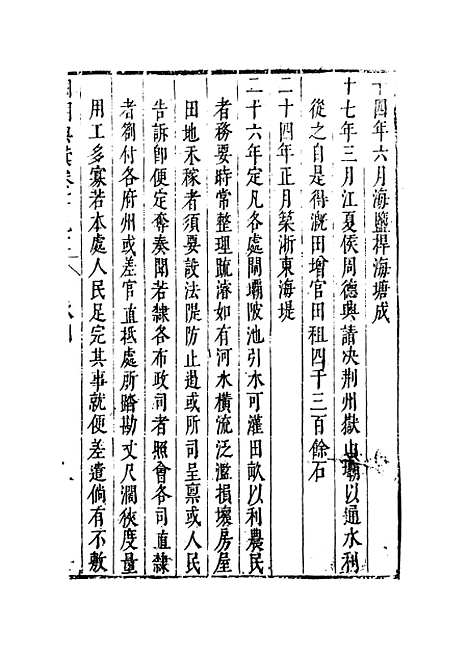 十四年六月海鹽捍海塘成
十七年三月江夏侯周德興請决荆州嶽山壩以通水利
從之自是得溉田增官田租四千三百餘石
二十四年正月築浙東海堤
二十六年定凡各處閘壩陂池引水可灌田畝以利農民
者務要時常整理疏濬如有河水横流泛濫損壞房屋
田地禾稼者須要設法隄防止遏或所司呈禀或人民
告訴卽便定奪奏聞若隸各布政司者照會各司直隸
者劄付各府州或差官直抵處所踏勘丈尺濶狹度量
用工多寡若本處人民足完其事就便差遣倘有不敷